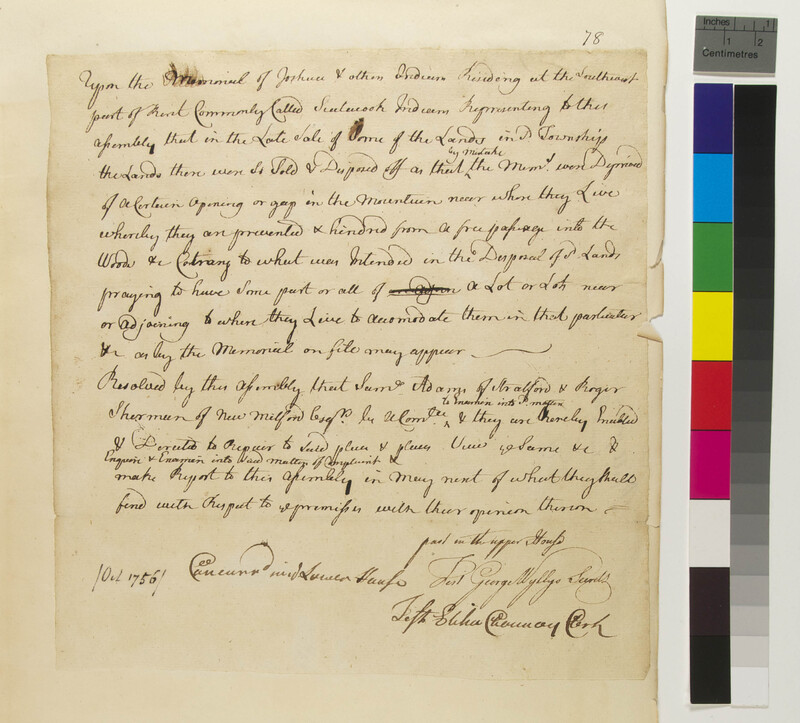 78
Upon the Memorial of Joshua & other Indians Residing at the Southeast
part of Kent Commonly Called Scatacook Indians Representing to this
assembly that in the Late Sale of Some of the Lands in sd Township
by Mistake
the Lands there were So Sold & Disposed off as that the Memts were Deprived
of a Certain opening or gap in the Mountain near where they Live
whereby they are prevented & hindred from a free passage into the
Woods &c Cotrary to what was Intended in the Disposal of sd Lands
praying to have Some part or all of a Lot or Lots near
or adjoining to where they Live to acomodate them in that particular
&c as by the Memorial on file may appear
Resolved by this assembly that Samll Adams of Stratford & Roger
to Examin into sd matter
Sherman of New Milford Esqrs be a Comtee & they are hereby Enabled
& Directed to Repair to Said place & places View ye Same &c &
Enquire & Examin into said matters of Complaint &
make Report to this assembly in May next of what they Shall
find with Respect to ye premisses with their opinion thereon
past in the upper House
[Oct 1756] Concurrd in ye Lower House Test George Wyllys Secrety
Test Elihu Chauncey Clerk
Inches 1
Centimetres 1 2